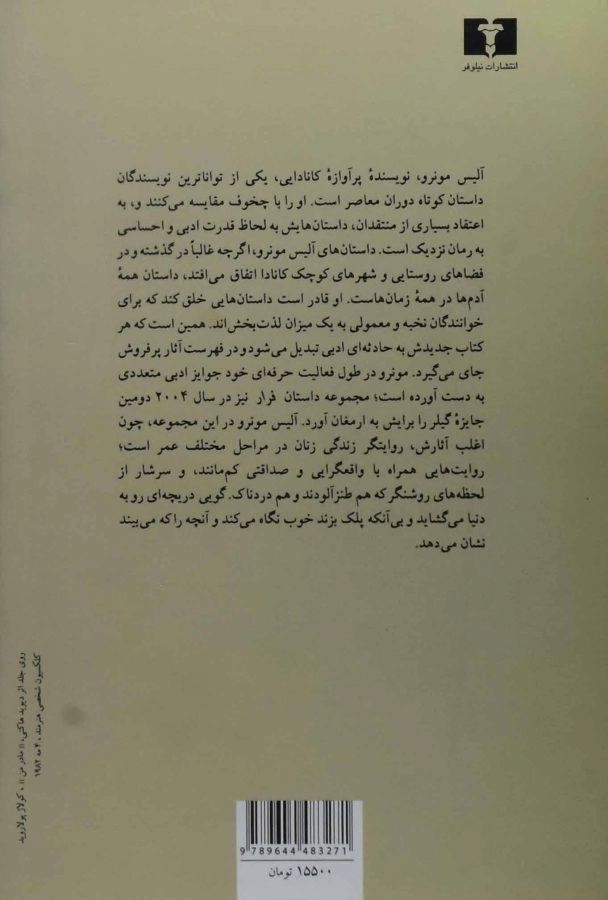 انتشارات نیلوفر
آلیس مونرو، نویسندهٔ پرآوازهٔ کانادایی، یکی از تواناترین نویسندگان
داستان کوتاه دوران معاصر است. او را با چخوف مقایسه می‌کنند و، به
اعتقاد بسیاری از منتقدان، داستان‌هایش به لحاظ قدرت ادبی و احساسی
به رمان نزدیک است. داستان‌های آلیس مونرو، اگرچه غالباً در گذشته و در
فضاهای روستایی و شهرهای کوچک کانادا اتفاق می‌افتد، داستان همهٔ
آدم‌ها در همهٔ زمان‌هاست. او قادر است داستان‌هایی خلق کند که برای
خوانندگان نخبه و معمولی به یک میزان لذت‌بخش‌اند. همین است که هر
کتاب جدیدش به حادثه‌ای ادبی تبدیل می‌شود و در فهرست آثار پرفروش
جای می‌گیرد. مونرو در طول فعالیت حرفه‌ای خود جوایز ادبی متعددی
به دست آورده است؛ مجموعه داستان فرار نیز در سال ۲۰۰۴ دومین
جایزهٔ گیلر را برایش به ارمغان آورد. آلیس مونرو در این مجموعه، چون
اغلب آثارش، روایتگر زندگی زنان در مراحل مختلف عمر است؛
روایت‌هایی همراه با واقعگرایی و صداقتی کم‌مانند، و سرشار از
لحظه‌های روشنگر که هم طنزآلودند و هم دردناک. گویی دریچه‌ای رو به
دنیا می‌گشاید و بی‌آنکه پلک بزند خوب نگاه می‌کند و آنچه را که می‌بیند
نشان می‌دهد.
روی جلد اثر دیوید هاکنی، «مادر من»، کولاژ پولاروید
کلکسیون شخصی هنرمند، ۴ مه ۱۹۸۲
9 789644 483271
۱۵۵۰۰ تومان